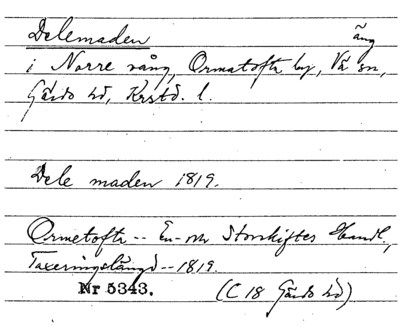 Delemaden äng
i Norre vång, Ormatofta by, Vä sn,
Gärds hd, Krstd. l.
Dele maden 1819.
Ormetofta -- En- och Storskiftes Handl.,
Taxeringslängd -- 1819.
Nr 5343. (C 18 Gärds hd)